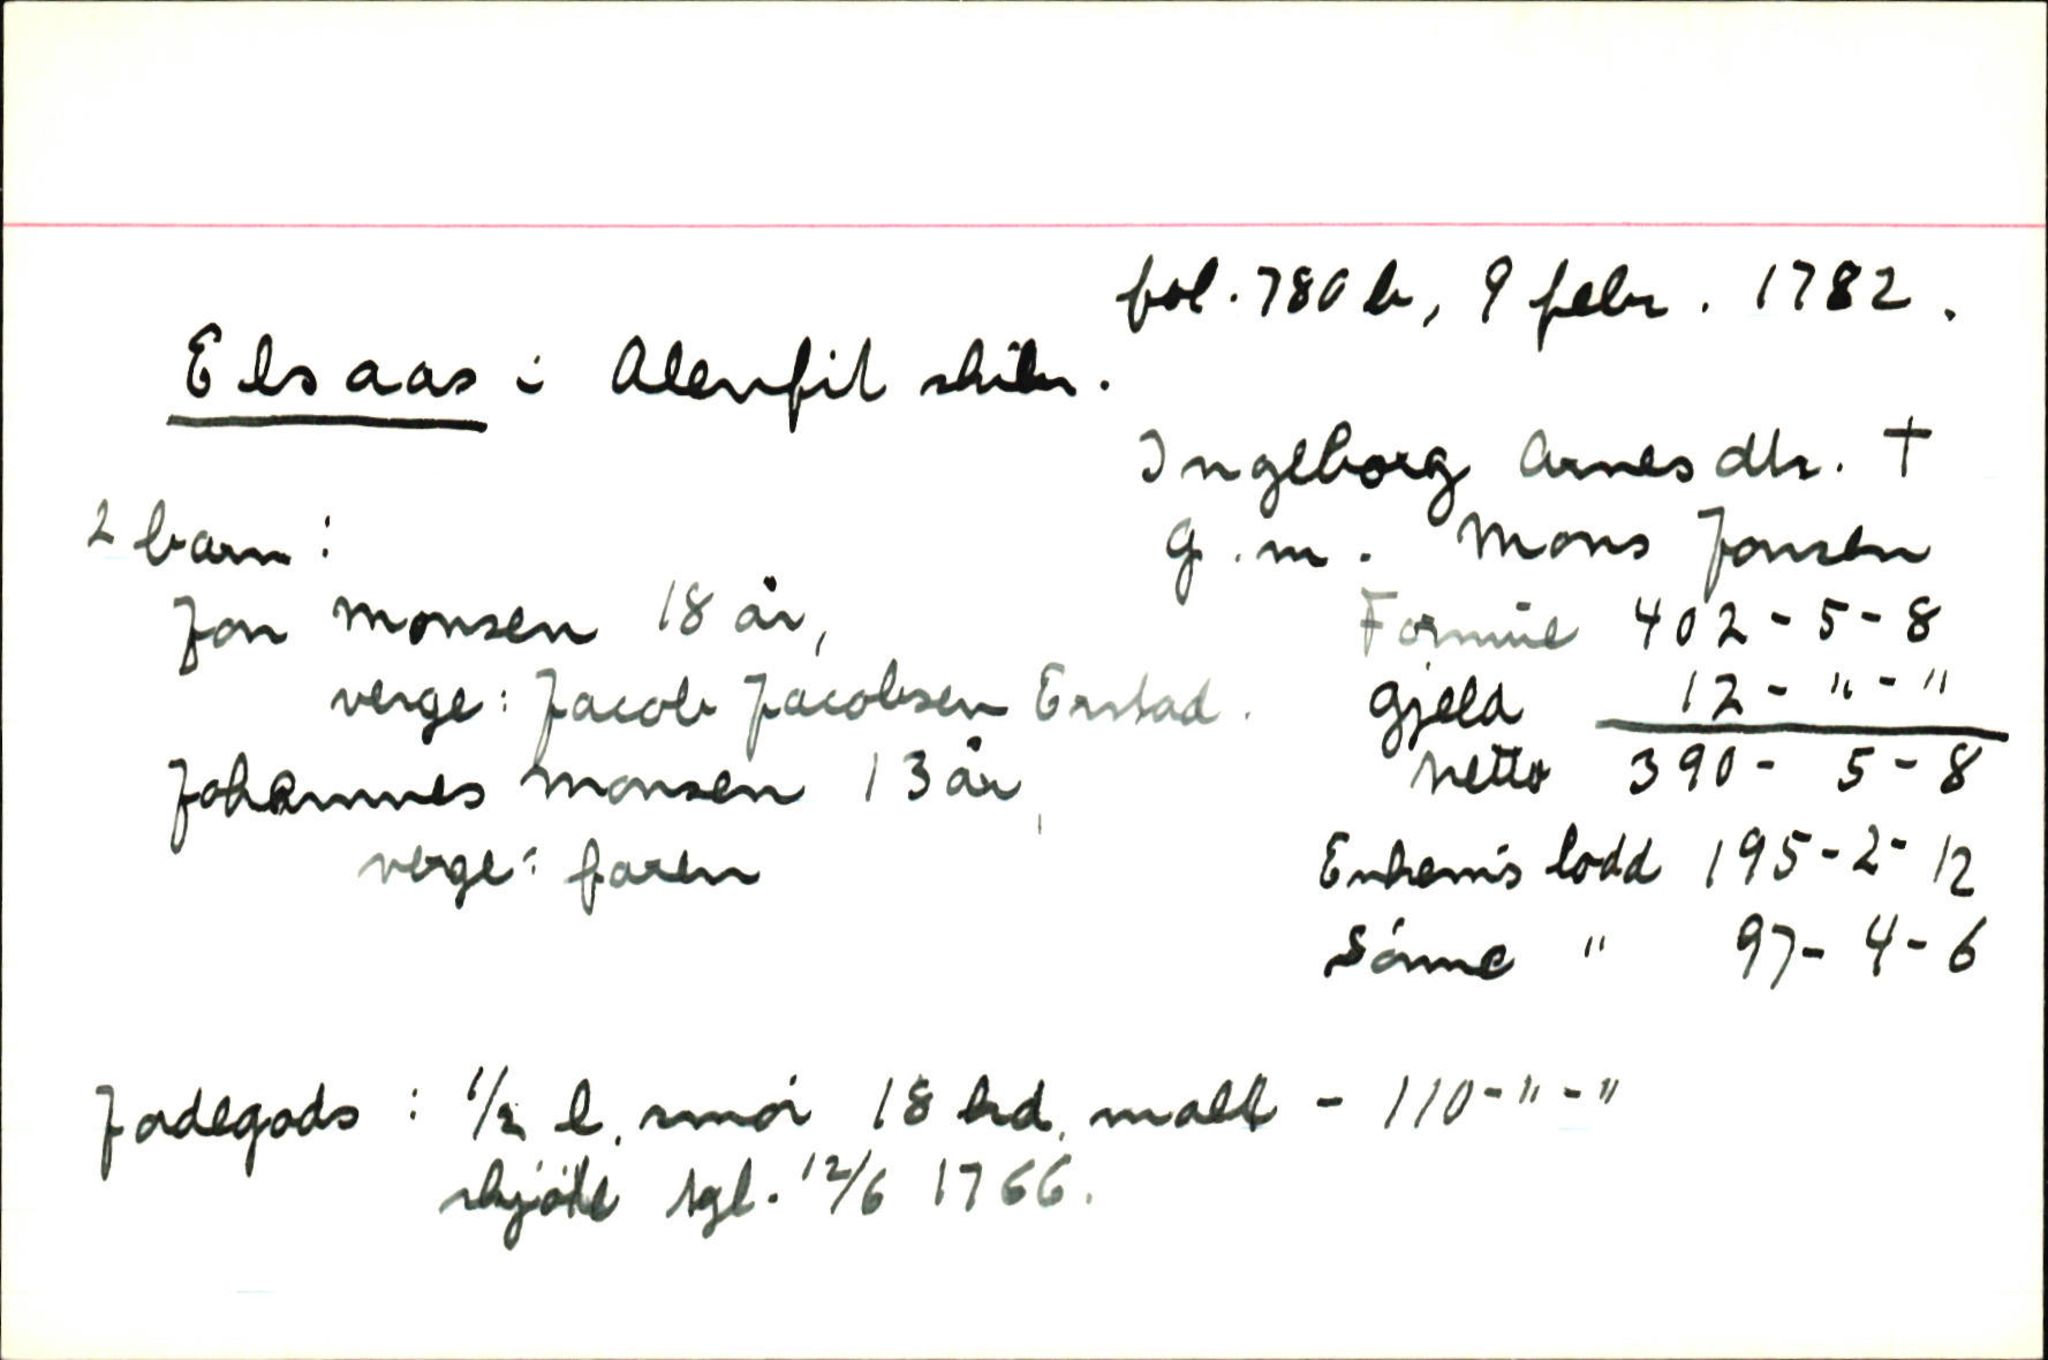 fol. 780 b, 9 febr. 1782.
Elsaas i Alenfit skibr.
Ingeborg Arnesdtr. †
g.m. Mons Jonsen
2 barn:
Jon Monsen 18 år,
verge: Jacob Jacobsen Erstad.
Johannes Monsen 13 år,
verge: faren
Formue 402-5-8
Gjeld 12-"-"
Netto 390-5-8
Enkem's lodd 195-2-12
Sønne " 97-4-6
Jordegods: 1/2 l. smør 18 kd. malt - 110-"-"
skjøte tgl. 12/6 1766.